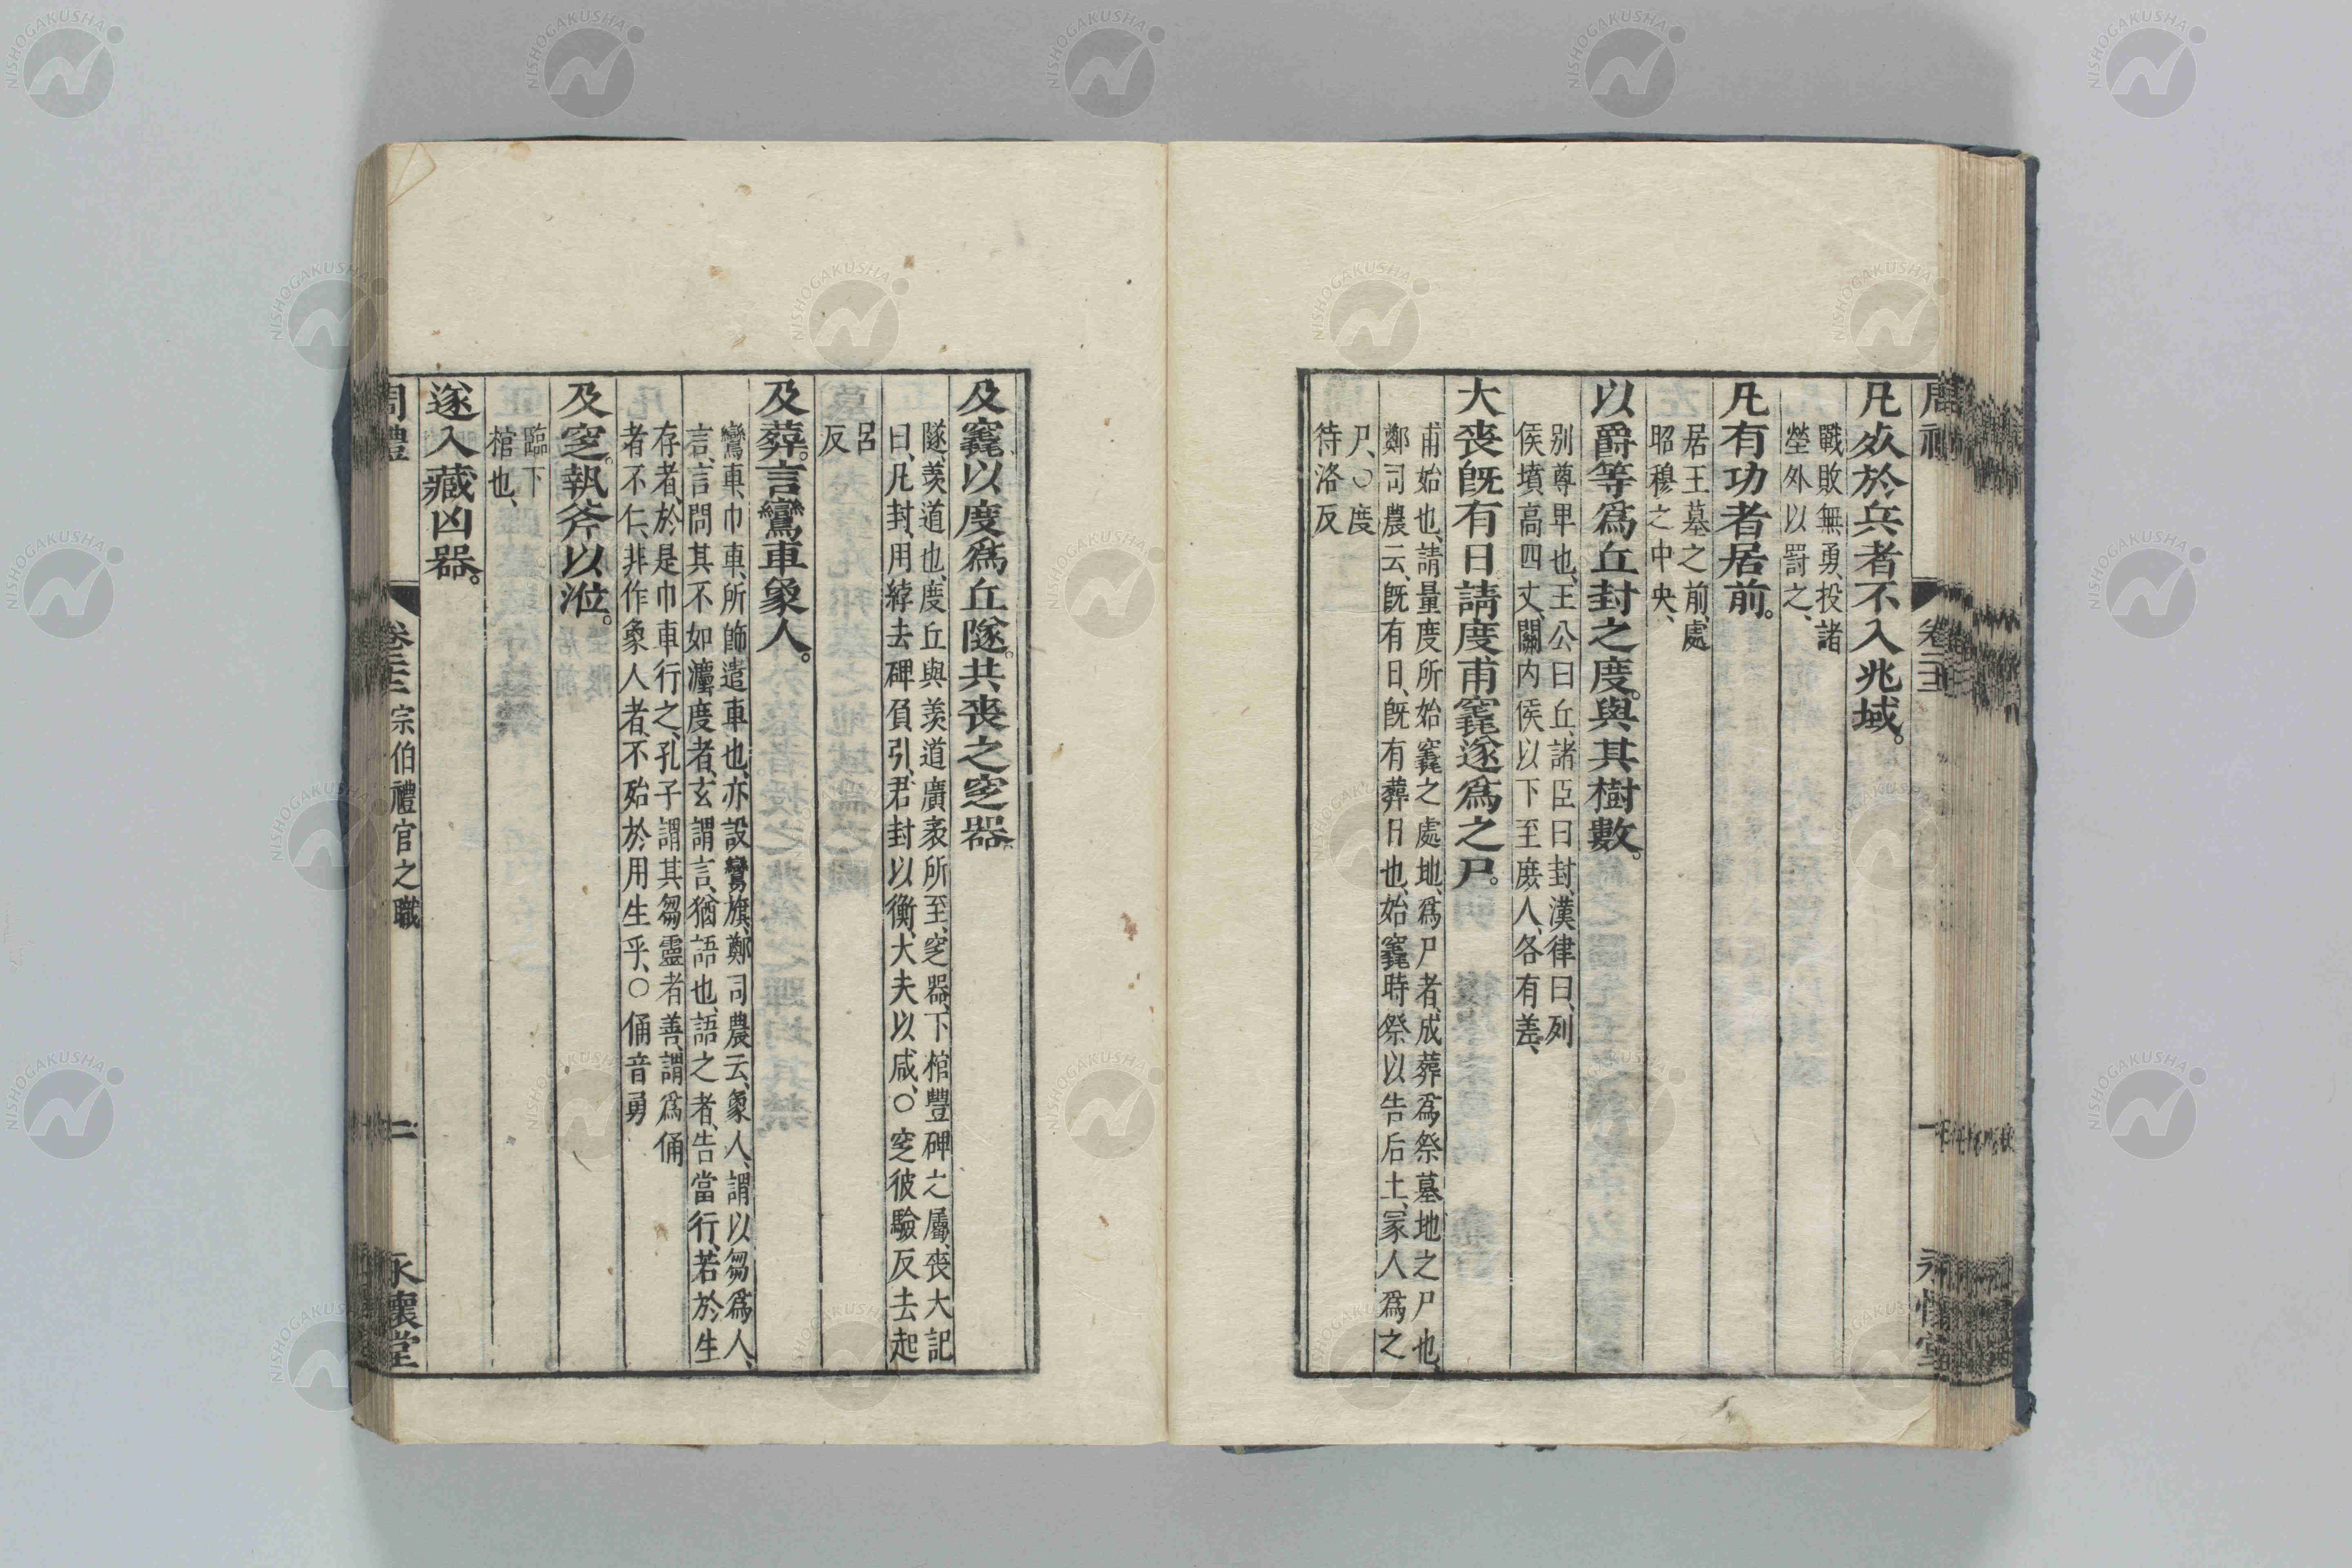 凡死於兵者不入兆域。
戰敗無勇、投諸
塋外以罰之、
凡有功者居前。
居王墓之前、處
昭穆之中央、
以爵等爲丘封之度。與其樹數。
別尊卑也、王公曰丘、諸臣曰封、漢律曰、列
侯墳高四丈、關内侯以下至庶人、各有差、
大喪旣有日請度甫竁遂爲之尸。
甫始也、請量度所始竁之處地、爲尸者、成葬爲祭墓地之尸也、
鄭司農云、旣有日、旣有葬日也、始竁時祭以告后土、冢人爲之
尸、○度
待洛反
及竁以度爲丘隧。共喪之窆器。
隧、羨道也、度丘與羨道廣袤所至、窆器、下棺豐碑之屬、喪大記
曰、凡封、用綍去碑負引、君封以衡、大夫以咸、○窆彼驗反去起
呂
反
及葬。言鸞車象人。
鸞車、巾車、所飾遣車也、亦設鸞旗、鄭司農云、象人、謂以芻爲人、
言、言問其不如灋度者、玄謂言、猶語也、語之者、告當行、若於生
存者、於是巾車行之、孔子謂其芻靈者善、謂爲俑
者不仁、非作象人者、不殆於用生乎、○俑音勇
及窆。執斧以涖。
臨下
棺也、
遂入藏凶器。
周禮 卷二十二 宗伯禮官之職 二 永懷堂